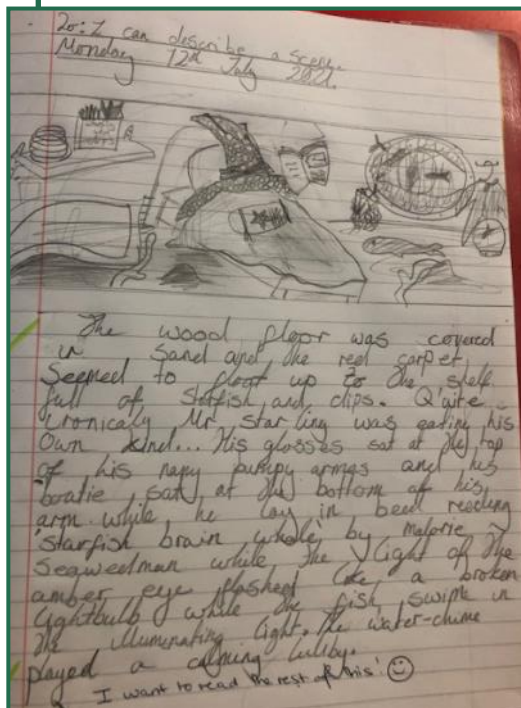 Lo: I can describe a scene.
Monday 12th July 2021.
The wood floor was covered
in sand and the red carpet
seemed to float up to the shelf
full of starfish and clips. Q'uite
ironicaly Mr starling was eating his
own kind... His glosses sat at the top
of his napy pumpy armas and his
boatie sat at the bottom of his
arm while he lay in bed reading
'starfish brain whole' by malorie
Seaweedman while the light of the
amber eye flashed like a broken
lightbulb while the fish swim in
the illuminating light. the water-chime
played a calming lullby.
I want to read the rest of this!